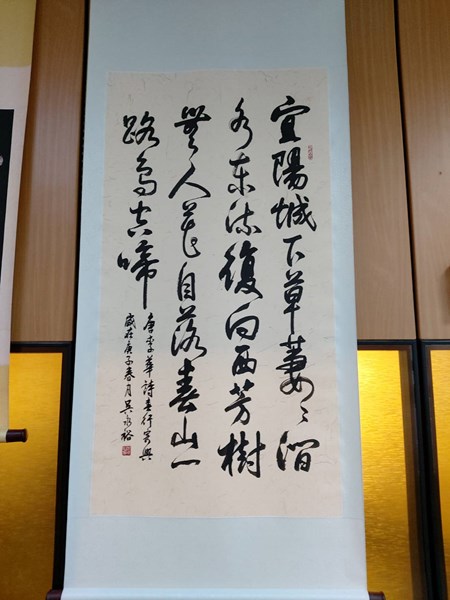 宜陽城下草萋〻澗
水東流復向西芳樹
無人花自落春山一
路鳥空啼
唐李華詩春行寄興
歲在庚子春月吳永裕